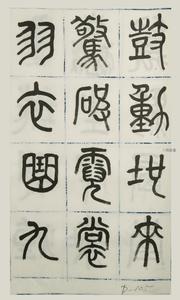 鼓動地來
驚破霓裳
羽衣曲九